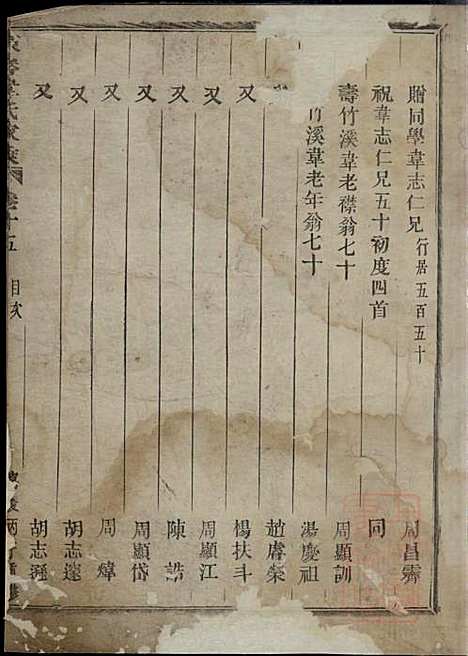 贈同學韋志仁兄 行居五百五十 周昌霽
祝韋志仁兄五十初度四首 同
壽竹溪韋老襟翁七十 周顯訓
竹溪韋老年翁七十 湯慶祖
趙膚榮
又 楊扶斗
又 周顯江
又 陳誥
又 周顯岱
又 周煒
又 胡志邃
又 胡志遜
韋氏家
卷十五 目次